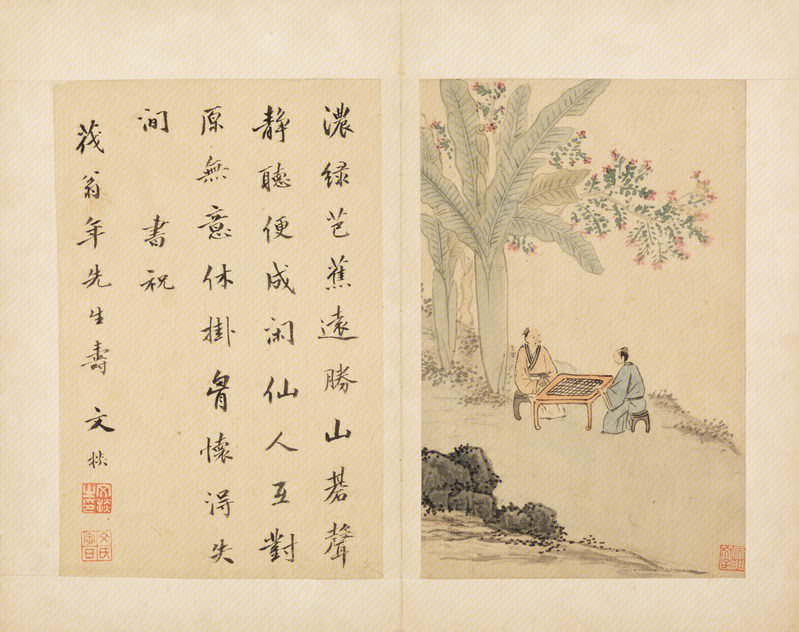 濃綠芭蕉遠勝山碁聲
靜聽便成閑仙人互對
原無意休掛胷懷得失
澗　書祝
筏翁年先生壽　文掞